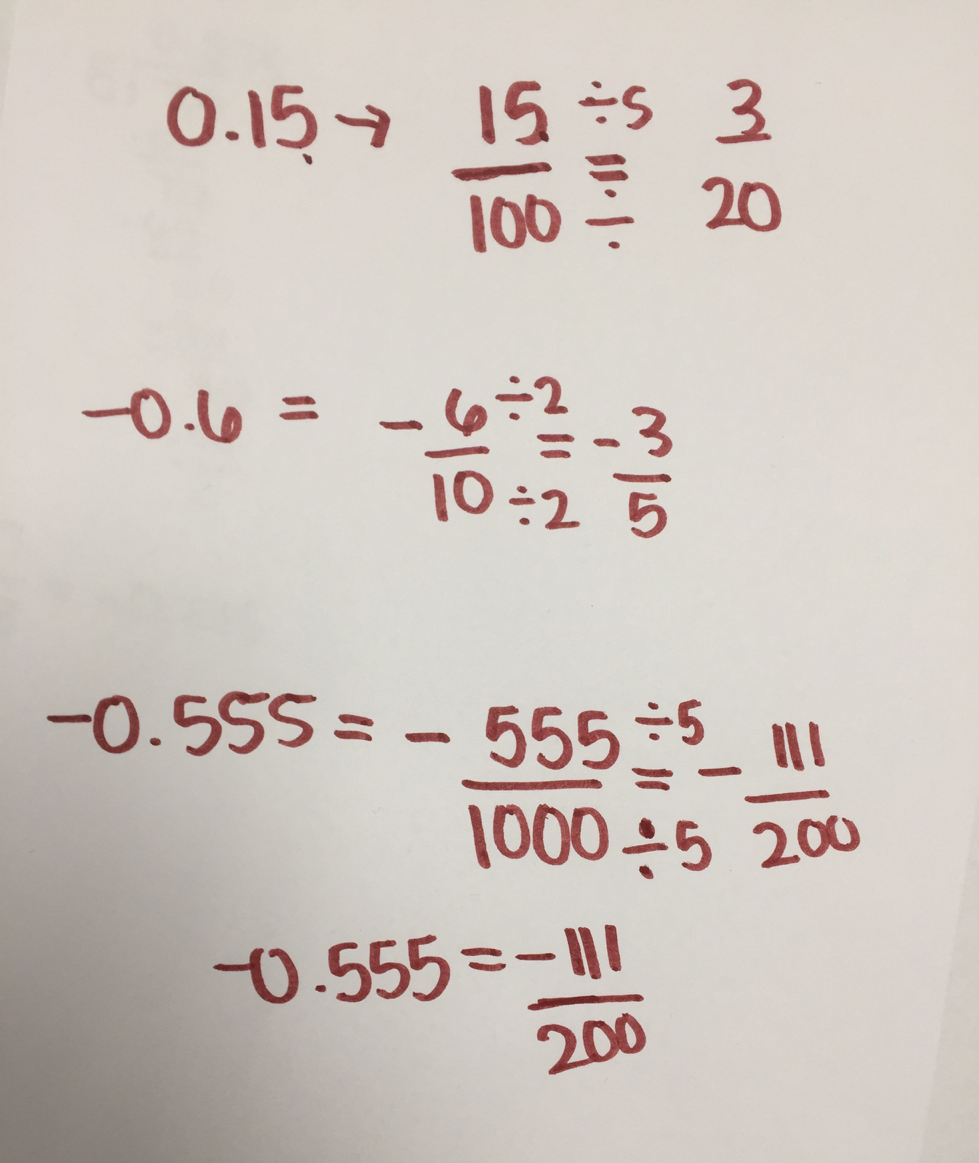 0.15 → 15/100 ÷5 = ÷ 3/20
-0.6 = - 6/10 ÷2 = ÷2 - 3/5
-0.555 = - 555/1000 ÷5 = ÷5 - 111/200
-0.555 = -111/200